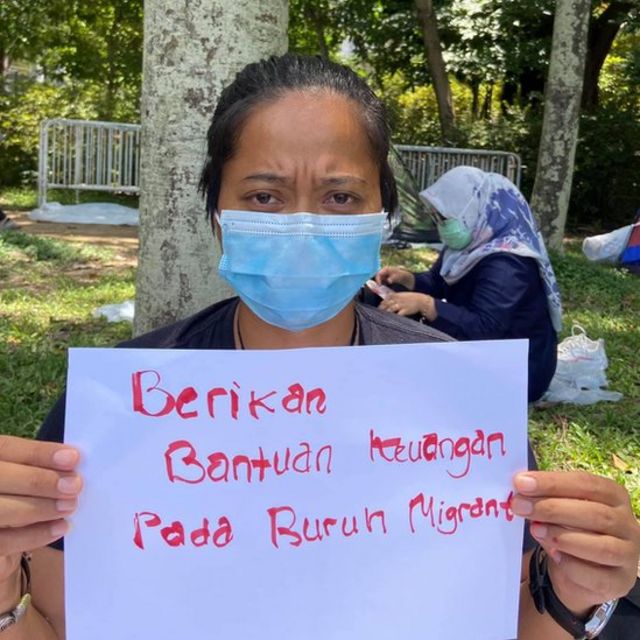 Berikan
Bantuan keuangan
Pada Buruh Migrant